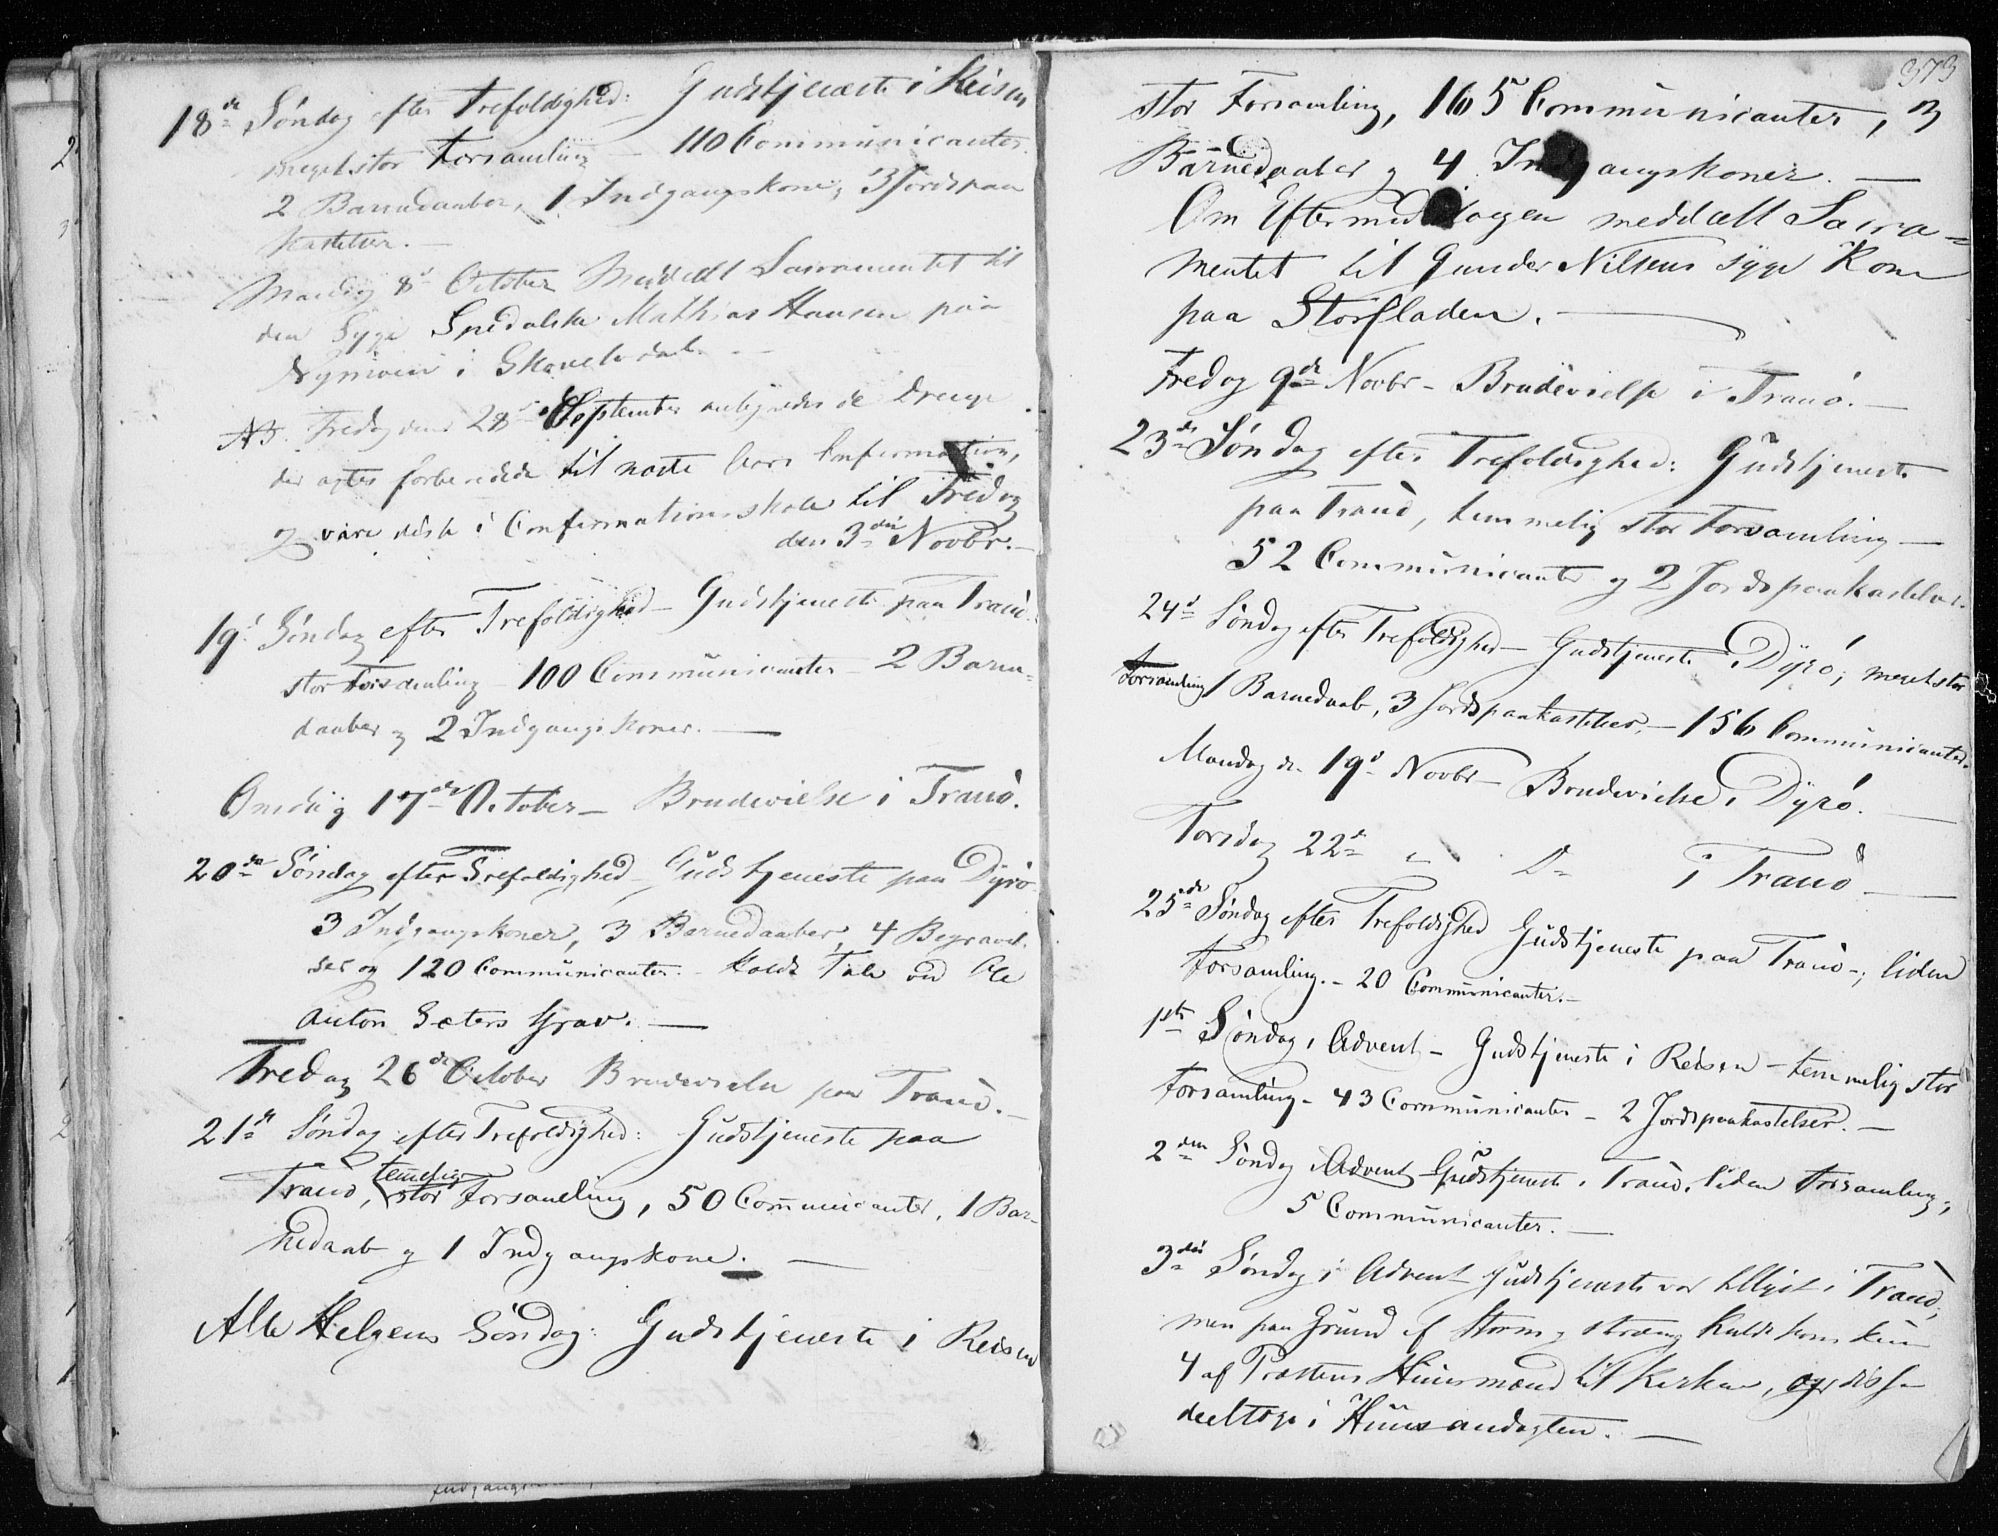 18de Søndag efter Trefoldighed: Gudstjeneste i Reisen
meget stor Forsamling – 110 Communicanter
2 Barnedaaber, 1 Indgangskone, 3 Jordspaa
kastelser. –
Mandag 8de October Meddeelt Sacramentet til
den syge Spedalske Mathias Hansen paa
Nymoen i
NB. Fredag den 28de September de Drenge
der agtes forberedede til næste Aars Confirmation,
og vare disse i Confirmationsskole til Fredag
den 3die Novbr. –
19de Søndag efter Trefoldighed – Gudstjeneste paa Tranö
stor Forsamling – 100 Communicanter – 2 Barne-
daaber og 2 Indgangskoner. –
Onsdag 17de October – Brudevielse i Tranö.
20de Søndag efter Trefoldighed – Gudstjeneste paa Dyrö
3 Indgangskoner, 3 Barnedaaber, 4 Begravel-
ser og 120 Communicanter. – holdt Tale ved Ole
Anton Sæters Grav. –
Fredag 26de October Brudevielse paa Tranö. –
21de Søndag efter Trefoldighed: Gudstjeneste paa
Tranö, temelig stor Forsamling, 50 Communicanter, 1 Bar-
nedaab og 1 Indgangskone. –
Alle Helgens Søndag: Gudstjeneste i Reisen
373
stor Forsamling, 165 Communicanter, 3
Barnedaaber og 4 Indgangskoner. –
Om Eftermiddagen meddeelt Sacra=
mentet til Gunder Nilsens syge Kone
paa Storfladen. –
Fredag 9de Novbr – Brudevielse i Tranö. –
23de Søndag efter Trefoldighed: Gudstjeneste
paa Tranö, temmelig stor Forsamling –
52 Communicanter og 2 Jordspaakastelser.
24de Søndag efter Trefoldighed – Gudstjeneste i Dyrö; meget stor
Forsamling 1 Barnedaab, 3 Jordspaakastelser, – 156 Communicanter.
Mandag den 19de Novbr – Brudevielse i Dyrö. –
Torsdag 22de " – Do i Tranö –
25de Søndag efter Trefoldighed Gudstjeneste paa Tranö –; liden
Forsamling. – 20 Communicanter. –
1ste Søndag i Advent – Gudstjeneste i Reisen – temmelig stor
Forsamling – 43 Communicanter – 2 Jordspaakastelser. –
2den Søndag i Advent Gudstjeneste i Tranö, liden Forsamling,
5 Communicanter. –
3die Søndag i Advent Gudstjeneste var tillyst i Tranö,
men paa Grund af Storm og streng Kulde kom kun
4 af Præstens Huusmænd til Kirken, og disse
deeltoge i Huusandagten. –